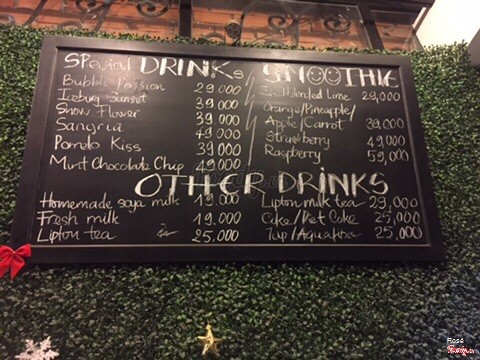 Special DRINKs
Bubble Passion 29,000
Iceburg Sunset 39,000
Snow Flower 39,000
Sangria 49,000
Pomelo Kiss 39,000
Mint Chocolate Chip 49,000
SMOOTHIE
Iceblended Lime 29,000
Orange/Pineapple/
Apple/Carrot 39,000
Strawberry 49,000
Raspberry 59,000
OTHER DRINKS
Homemade soya milk 19,000
Fresh milk 19.000
Lipton tea 25.000
Lipton milk tea 29,000
Coke/Diet Coke 25,000
7up/Aquafina 25,000